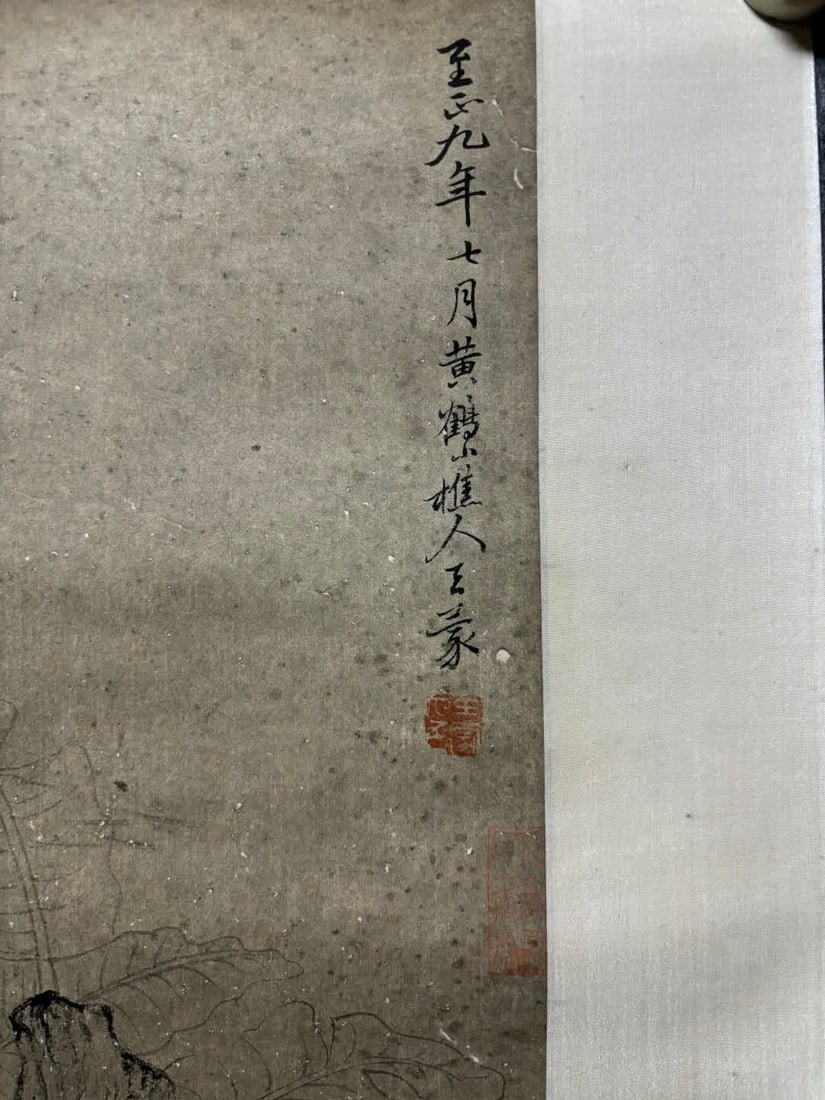 至正九年七月黄鶴山樵人王蒙